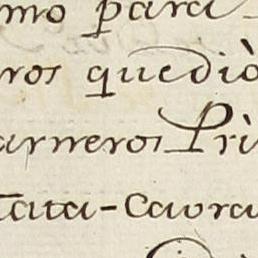 mo para
ros quediò
arneros Prì
Tata-Caora